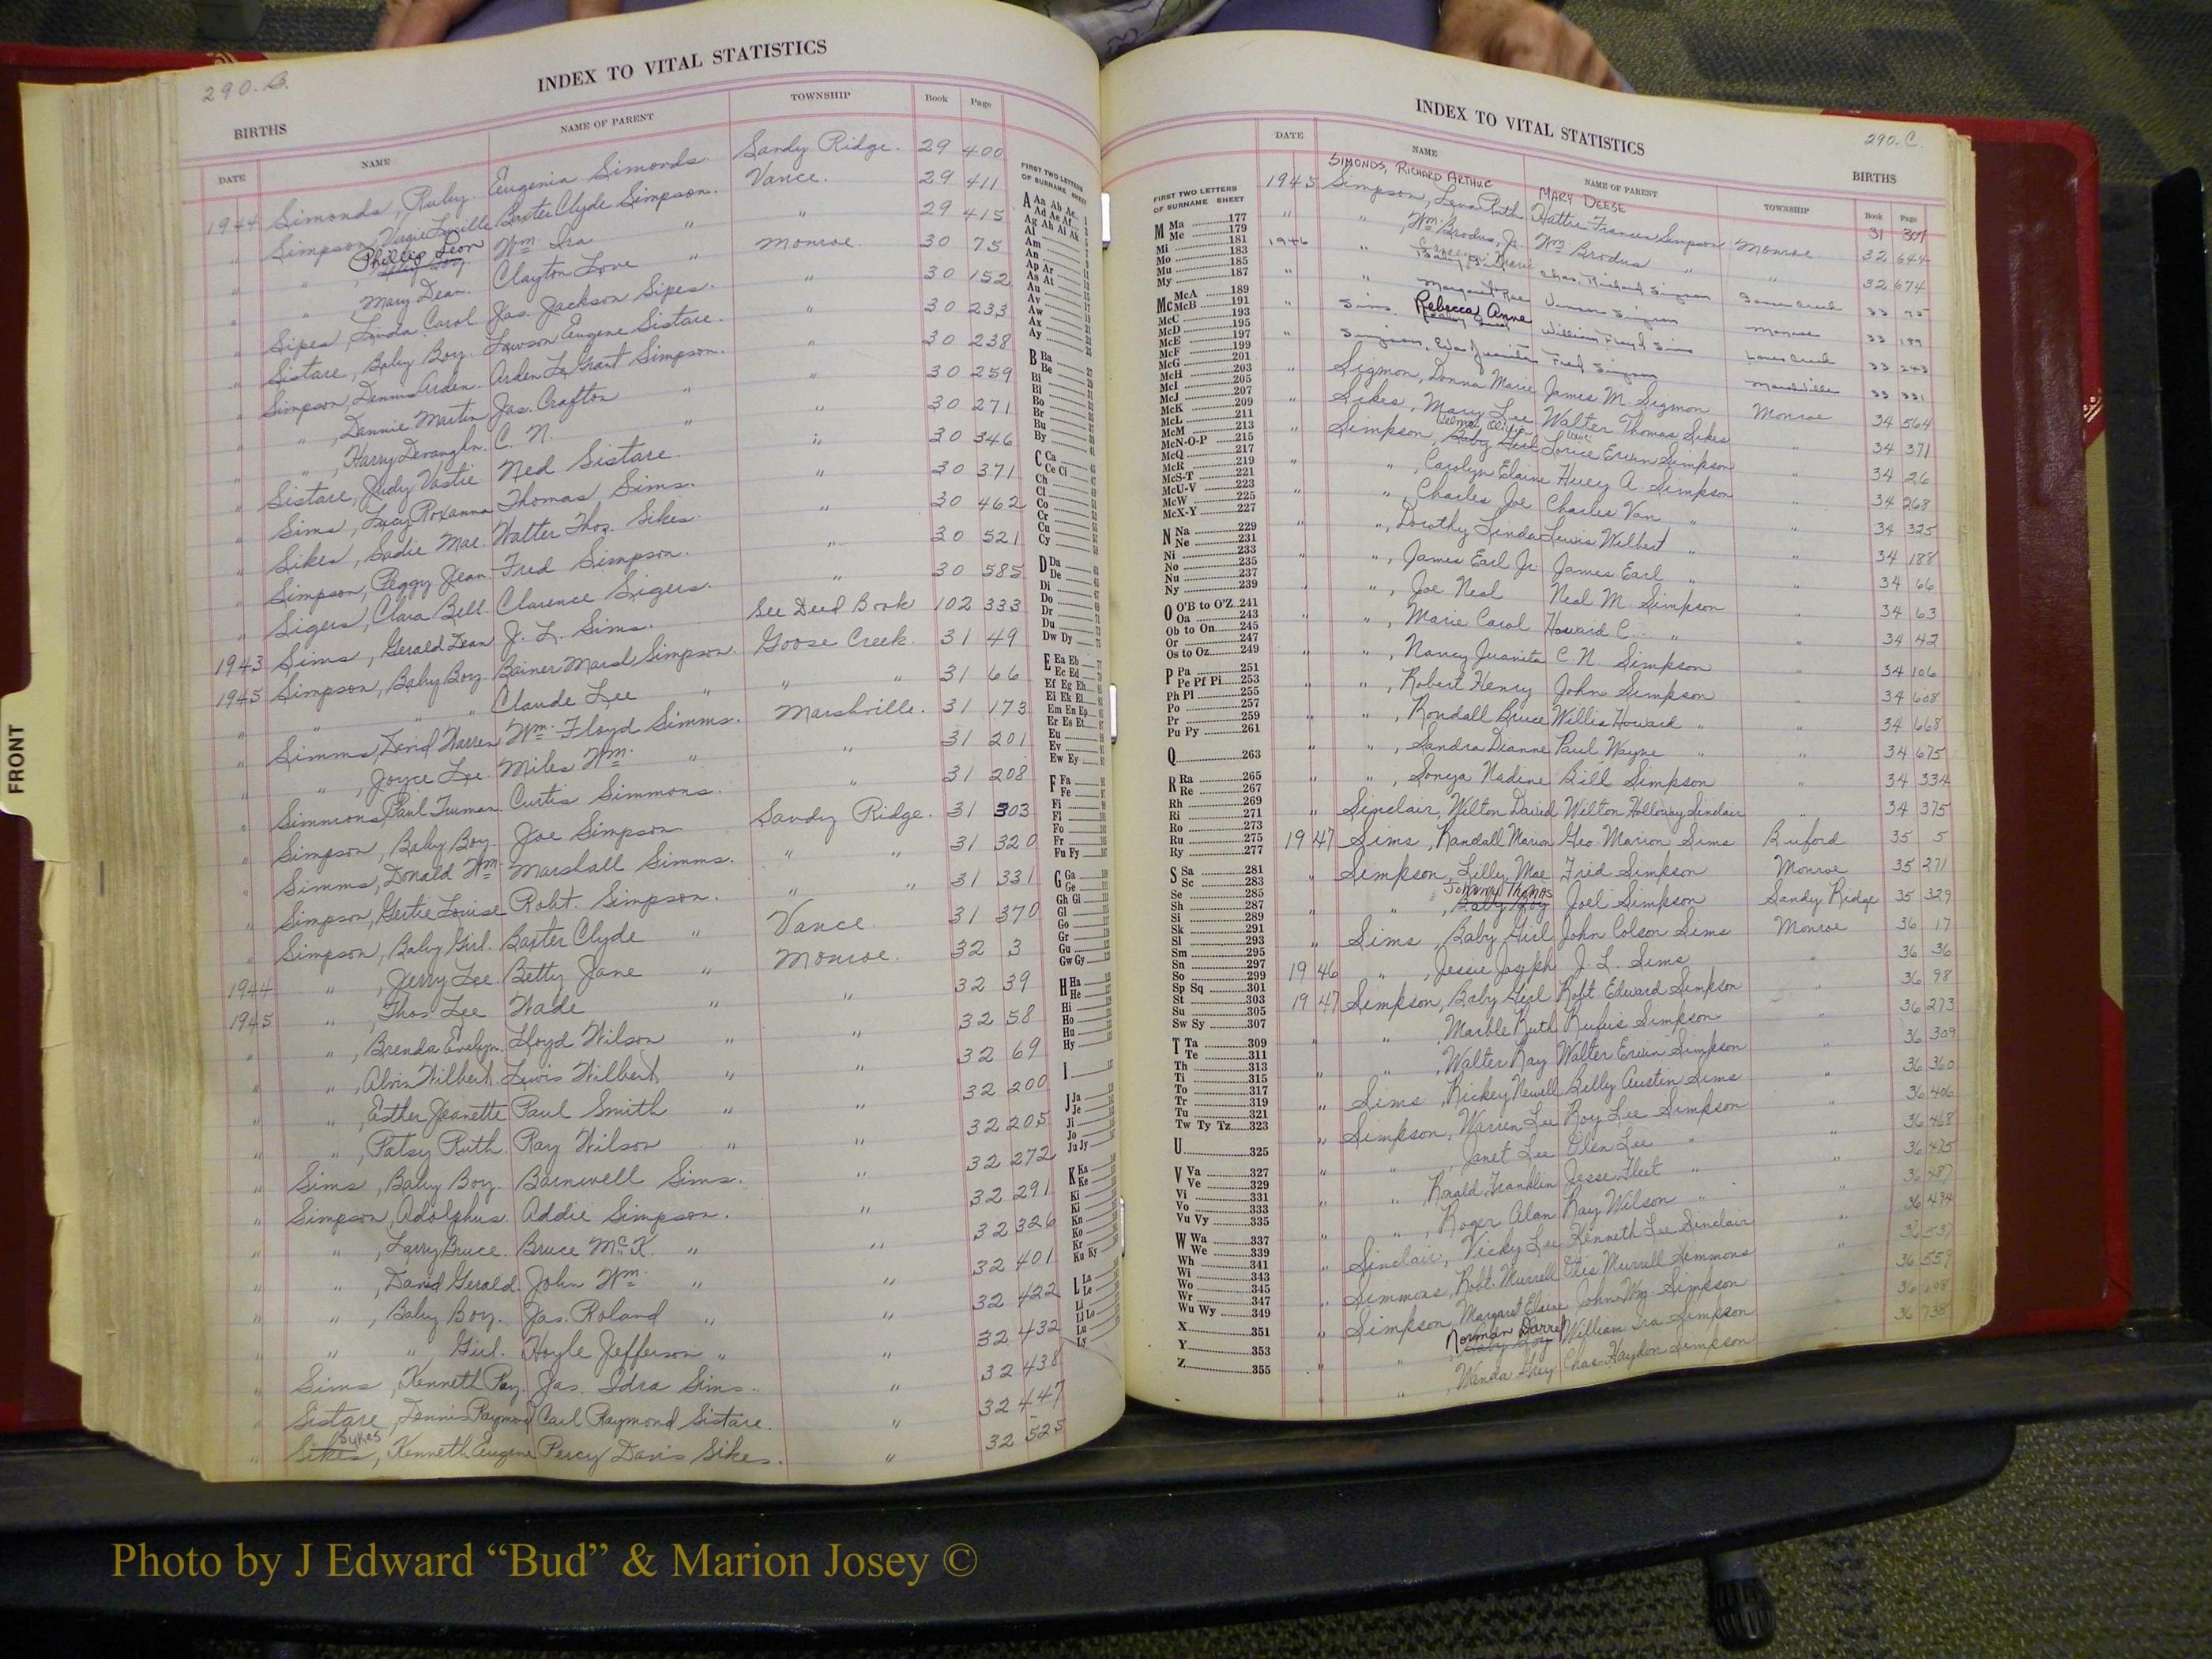 290.B.
INDEX TO VITAL STATISTICS
BIRTHS
DATE NAME NAME OF PARENT TOWNSHIP Book Page
1944 Simonds, Ruby Eugenia Simonds. Sandy Ridge. 29 400
" Simpson, Virgie Baxter Clyde Simpson. Vance. 29 411
" " , Phillip Leon Wm. Ira " " 29 415
" " Mary Dean. Clayton Love " Monroe. 30 75
" Sipes, Linda Carol Jas. Jackson Sipes. " 30 152
" Sistare, Baby Boy. Lawson Eugene Sistare. " 30 233
" Simpson, Dennis Arden. Arden Le Grant Simpson. " 30 238
" " , Dannie Martin Jas. Crafton " " 30 259
" " , Harry Devaughn. C. N. " " 30 271
" Sistare, Judy Vastie Ned Sistare. " 30 346
" Sims, Lucy Roxanna Thomas Sims. " 30 371
" Sikes, Sadie Mae. Walter Thos. Sikes. " 30 462
" Simpson, Peggy Jean. Fred Simpson. " 30 521
" Sigers, Clara Bell. Clarence Sigers. " 30 585
1943 Sims, Gerald Dean J. L. Sims. See Deed Book 102 333
1945 Simpson, Baby Boy. Simpson. Goose Creek. 31 49
" " " " Claude Lee " " " 31 66
" Simms, David Warren Wm. Floyd Simms. Marshville. 31 173
" " , Joyce Lee Miles Wm. " " 31 201
" Simmons, Paul Truman. Curtis Simmons. " 31 208
" Simpson, Baby Boy. Joe Simpson Sandy Ridge. 31 303
" Simms, Donald Wm. Marshall Simms. " " 31 320
" Simpson, Gertie Louise Robt. Simpson. " " 31 331
" Simpson, Baby Girl. Baxter Clyde " Vance 31 370
1944 " , Jerry Lee. Betty Jane " Monroe. 32 3
1945 " , Thos Lee Wade " " 32 39
" " , Brenda Evelyn. Lloyd Wilson " " 32 58
" " , Alvin Wilbert. Lewis Wilbert " " 32 69
" " , Esther Jeanette Paul Smith " " 32 200
" " , Patsy Ruth. Ray Wilson " " 32 205
" Sims, Baby Boy. Barnwell Sims. " 32 272
" Simpson, Adolphus. Addie Simpson. " 32 291
" " , Larry Bruce. Bruce McK. " " 32 326
" " , David Gerald. John Wm. " " 32 401
" " , Baby Boy. Jas. Roland " " 32 422
" " " Girl. Hoyle Jefferson " " 32 432
" Sims, Kenneth Ray. Jas. Idra Sims. " 32 438
" Sistare, Dennis Raymond Carl Raymond Sistare. " 32 447
" Sikes Sykes, Kenneth Eugene Percy Davis Sikes. " 32 525
FRONT
FIRST TWO LETTERS
OF SURNAME SHEET
A Aa Ab Ac
Ad Ae Af
Ag Ah Ai Ak
Al
Am
An
Ap Ar
As At
Au
Av
Aw
Ax
Ay
B Ba
Be
Bi
Bl
Bo
Br
Bu
By
C Ca
Ce Ci
Ch
Cl
Co
Cr
Cu
Cy
D Da
De
Di
Do
Dr
Du
Dw Dy
E Ea Eb
Ec Ed
Ef Eg Eh
Ei Ek El
Em En Ep
Er Es Et
Eu
Ev
Ew Ey
F Fa
Fe
Fi
Fl
Fo
Fr
Fu Fy
G Ga
Ge
Gh Gi
Gl
Go
Gr
Gu
Gw Gy
H Ha
He
Hi
Ho
Hu
Hy
I
J Ja
Je
Ji
Jo
Ju Jy
K Ka
Ke
Ki
Kl
Kn
Ko
Kr
Ku Ky
L La
Le
Li
Ll Lo
Lu
Ly
INDEX TO VITAL STATISTICS
290.C.
BIRTHS
DATE NAME NAME OF PARENT TOWNSHIP Book Page
SIMONDS, RICHARD ARTHUR MARY DEESE
1945 Simpson, Lena Ruth Hattie Frances Simpson Monroe 31 301
" " , Wm. Brodus, Jr. Wm Brodus " " 32 644
1946 " Marie Chas. Richard Simpson Goose Creek 32 674
" " Margaret Rae Vernon Simpson Monroe 33 95
" Sims Rebecca Anne William Floyd Sims Lanes Creek 33 199
" Simpson, Eva Juanita Fred Simpson Marshville 33 243
33 331
" Sigmon, Donna Marie James M. Sigmon Monroe 34 564
" Sikes, Mary Lee Walter Thomas Sikes " 34 371
" Simpson, Baby Girl Ervin Simpson " 34 26
" " , Carolyn Elaine Huey A. Simpson " 34 268
" " , Charles Joe Charles Van " " 34 325
" " , Dorothy Linda Lewis Wilbert " " 34 188
" " , James Earl Jr. James Earl " " 34 66
" " , Joe Neal Neal M. Simpson " 34 63
" " , Marie Carol Howard C. " " 34 42
" " , Nancy Juanita C. N. Simpson " 34 106
" " , Robert Henry John Simpson " 34 608
" " , Rondall Bruce Willis Howard " " 34 668
" " , Sandra Dianne Paul Wayne " " 34 675
" " , Sonya Nadine Bill Simpson " 34 334
" Sinclair, Wilton David Wilton Holloway Sinclair " 34 375
1947 Sims, Randall Marion Geo. Marion Sims Buford 35 5
" Simpson, Lilly Mae Fred Simpson Monroe 35 271
" " , Baby Boy Johnny Thomas Joel Simpson Sandy Ridge 35 329
" Sims, Baby Girl John Colson Sims Monroe 36 17
1946 " , Jessie Joseph J. L. Sims " 36 36
1947 Simpson, Baby Girl Robt. Edward Simpson " 36 98
" " , Marble Ruth Rufus Simpson " 36 273
" " , Walter Ray Walter Ervin Simpson " 36 309
" Sims, Rickey Newell Billy Austin Sims " 36 360
" Simpson, Warren Lee Roy Lee Simpson " 36 406
" " , Janet Lee Olen Lee " " 36 468
" " Ronald Franklin Jesse Fleet " " 36 475
" " , Roger Alan Ray Wilson " " 36 487
" Sinclair, Vicky Lee Kenneth Lee Sinclair " 36 494
" Simmons, Robt. Murrell Otis Murrell Simmons " 36 537
" Simpson, Margaret Elaine John Wm. Simpson 36 559
" " , Baby Boy Norman Darrel William Ira Simpson 36 608
" " , Wanda Gay Chas. Haydon Simpson 36 738
FIRST TWO LETTERS
OF SURNAME SHEET
M Ma 177
Me 179
Mi 181
Mo 183
Mu 185
My 187
Mc McA 189
McB 191
McC 193
McD 195
McE 197
McF 199
McG 201
McH 203
McI 205
McJ 207
McK 209
McL 211
McM 213
McN-O-P 215
McQ 217
McR 219
McS-T 221
McU-V 223
McW 225
McX-Y 227
N Na 229
Ne 231
Ni 233
No 235
Nu 237
Ny 239
O O'B to O'Z 241
Oa 243
Ob to On 245
Or 247
Os to Oz 249
P Pa 251
Pe Pf Pi 253
Ph Pl 255
Po 257
Pr 259
Pu Py 261
Q 263
R Ra 265
Re 267
Rh 269
Ri 271
Ro 273
Ru 275
Ry 277
S Sa 281
Sc 283
Se 285
Sh 287
Si 289
Sk 291
Sl 293
Sm 295
Sn 297
So 299
Sp Sq 301
St 303
Su 305
Sw Sy 307
T Ta 309
Te 311
Th 313
Ti 315
To 317
Tr 319
Tu 321
Tw Ty Tz 323
U 325
V Va 327
Ve 329
Vi 331
Vo 333
Vu Vy 335
W Wa 337
We 339
Wh 341
Wi 343
Wo 345
Wr 347
Wu Wy 349
X 351
Y 353
Z 355
Photo by J Edward “Bud” & Marion Josey ©